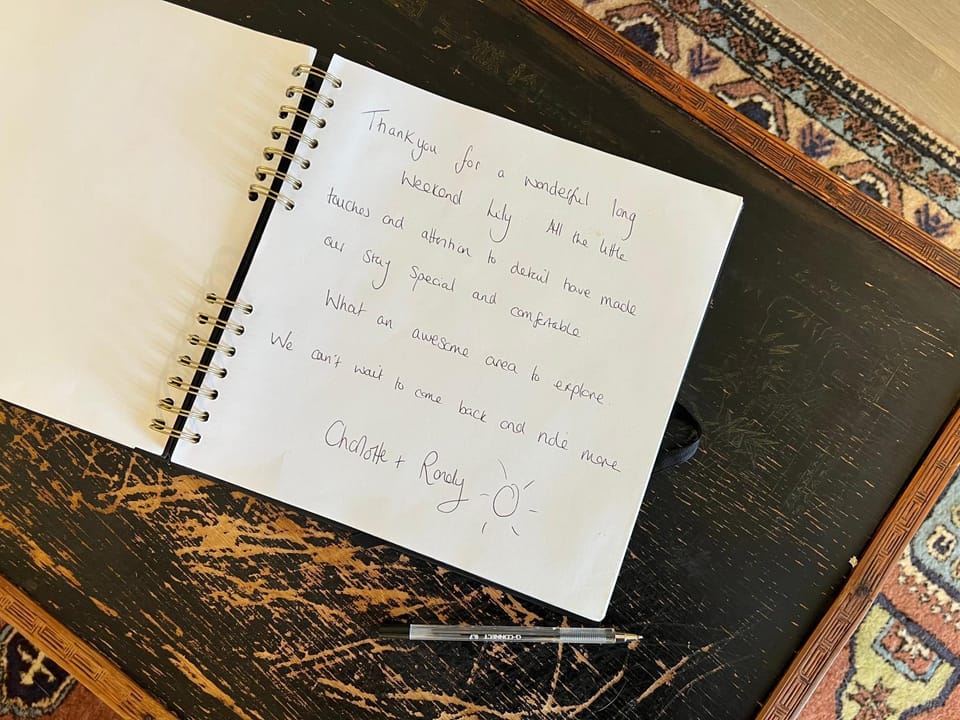 Thankyou for a wonderful long
Weekend Lily All the little
touches and attention to detail have made
our stay special and comfortable
What an awesome area to explore.
We can't wait to come back and ride more
Charlotte + Randy
Q-CONNECT